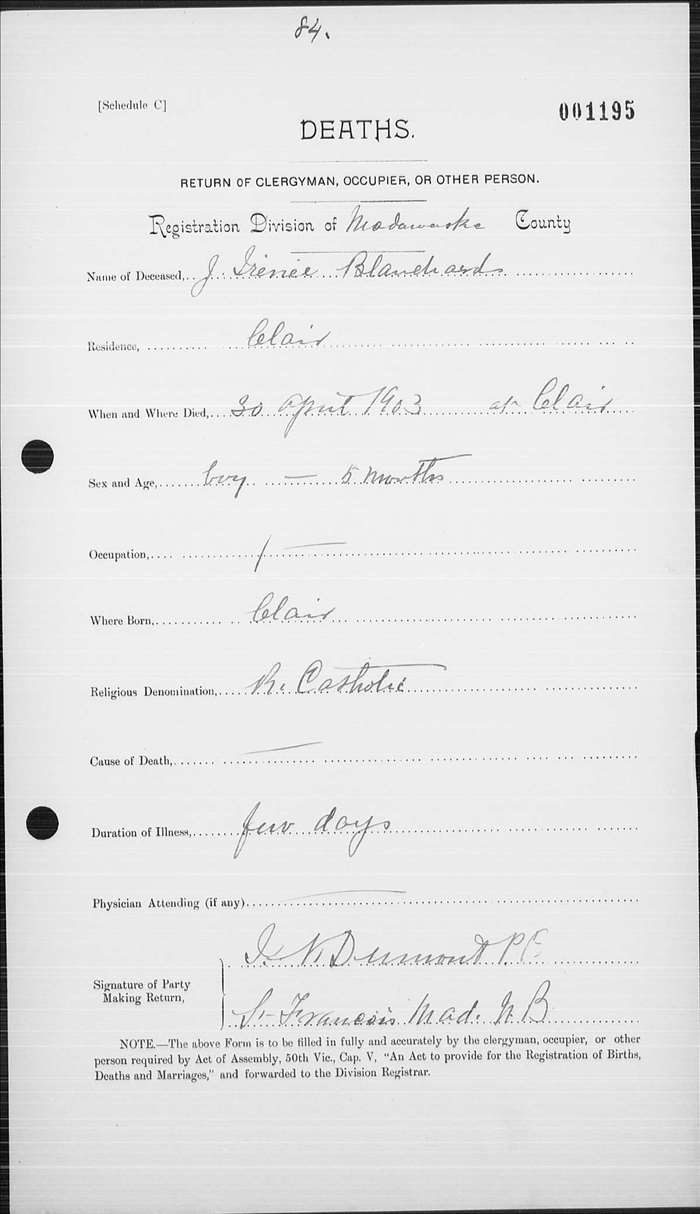 84.
[Schedule C]
001195
DEATHS.
RETURN OF CLERGYMAN, OCCUPIER, OR OTHER PERSON.
Registration Division of Madawaska County
Name of Deceased, J. Irénée Blanchard
Residence, Clair
When and Where Died, 30 April 1903 at Clair
Sex and Age, boy — 5 months
Occupation, —
Where Born, Clair
Religious Denomination, R. Catholic
Cause of Death, —
Duration of Illness, few days
Physician Attending (if any) —
Signature of Party
Making Return,
Dumont P.P.
St Francois Mad. N B
NOTE.—The above Form is to be filled in fully and accurately by the clergyman, occupier, or other
person required by Act of Assembly, 50th Vic., Cap. V, "An Act to provide for the Registration of Births,
Deaths and Marriages," and forwarded to the Division Registrar.